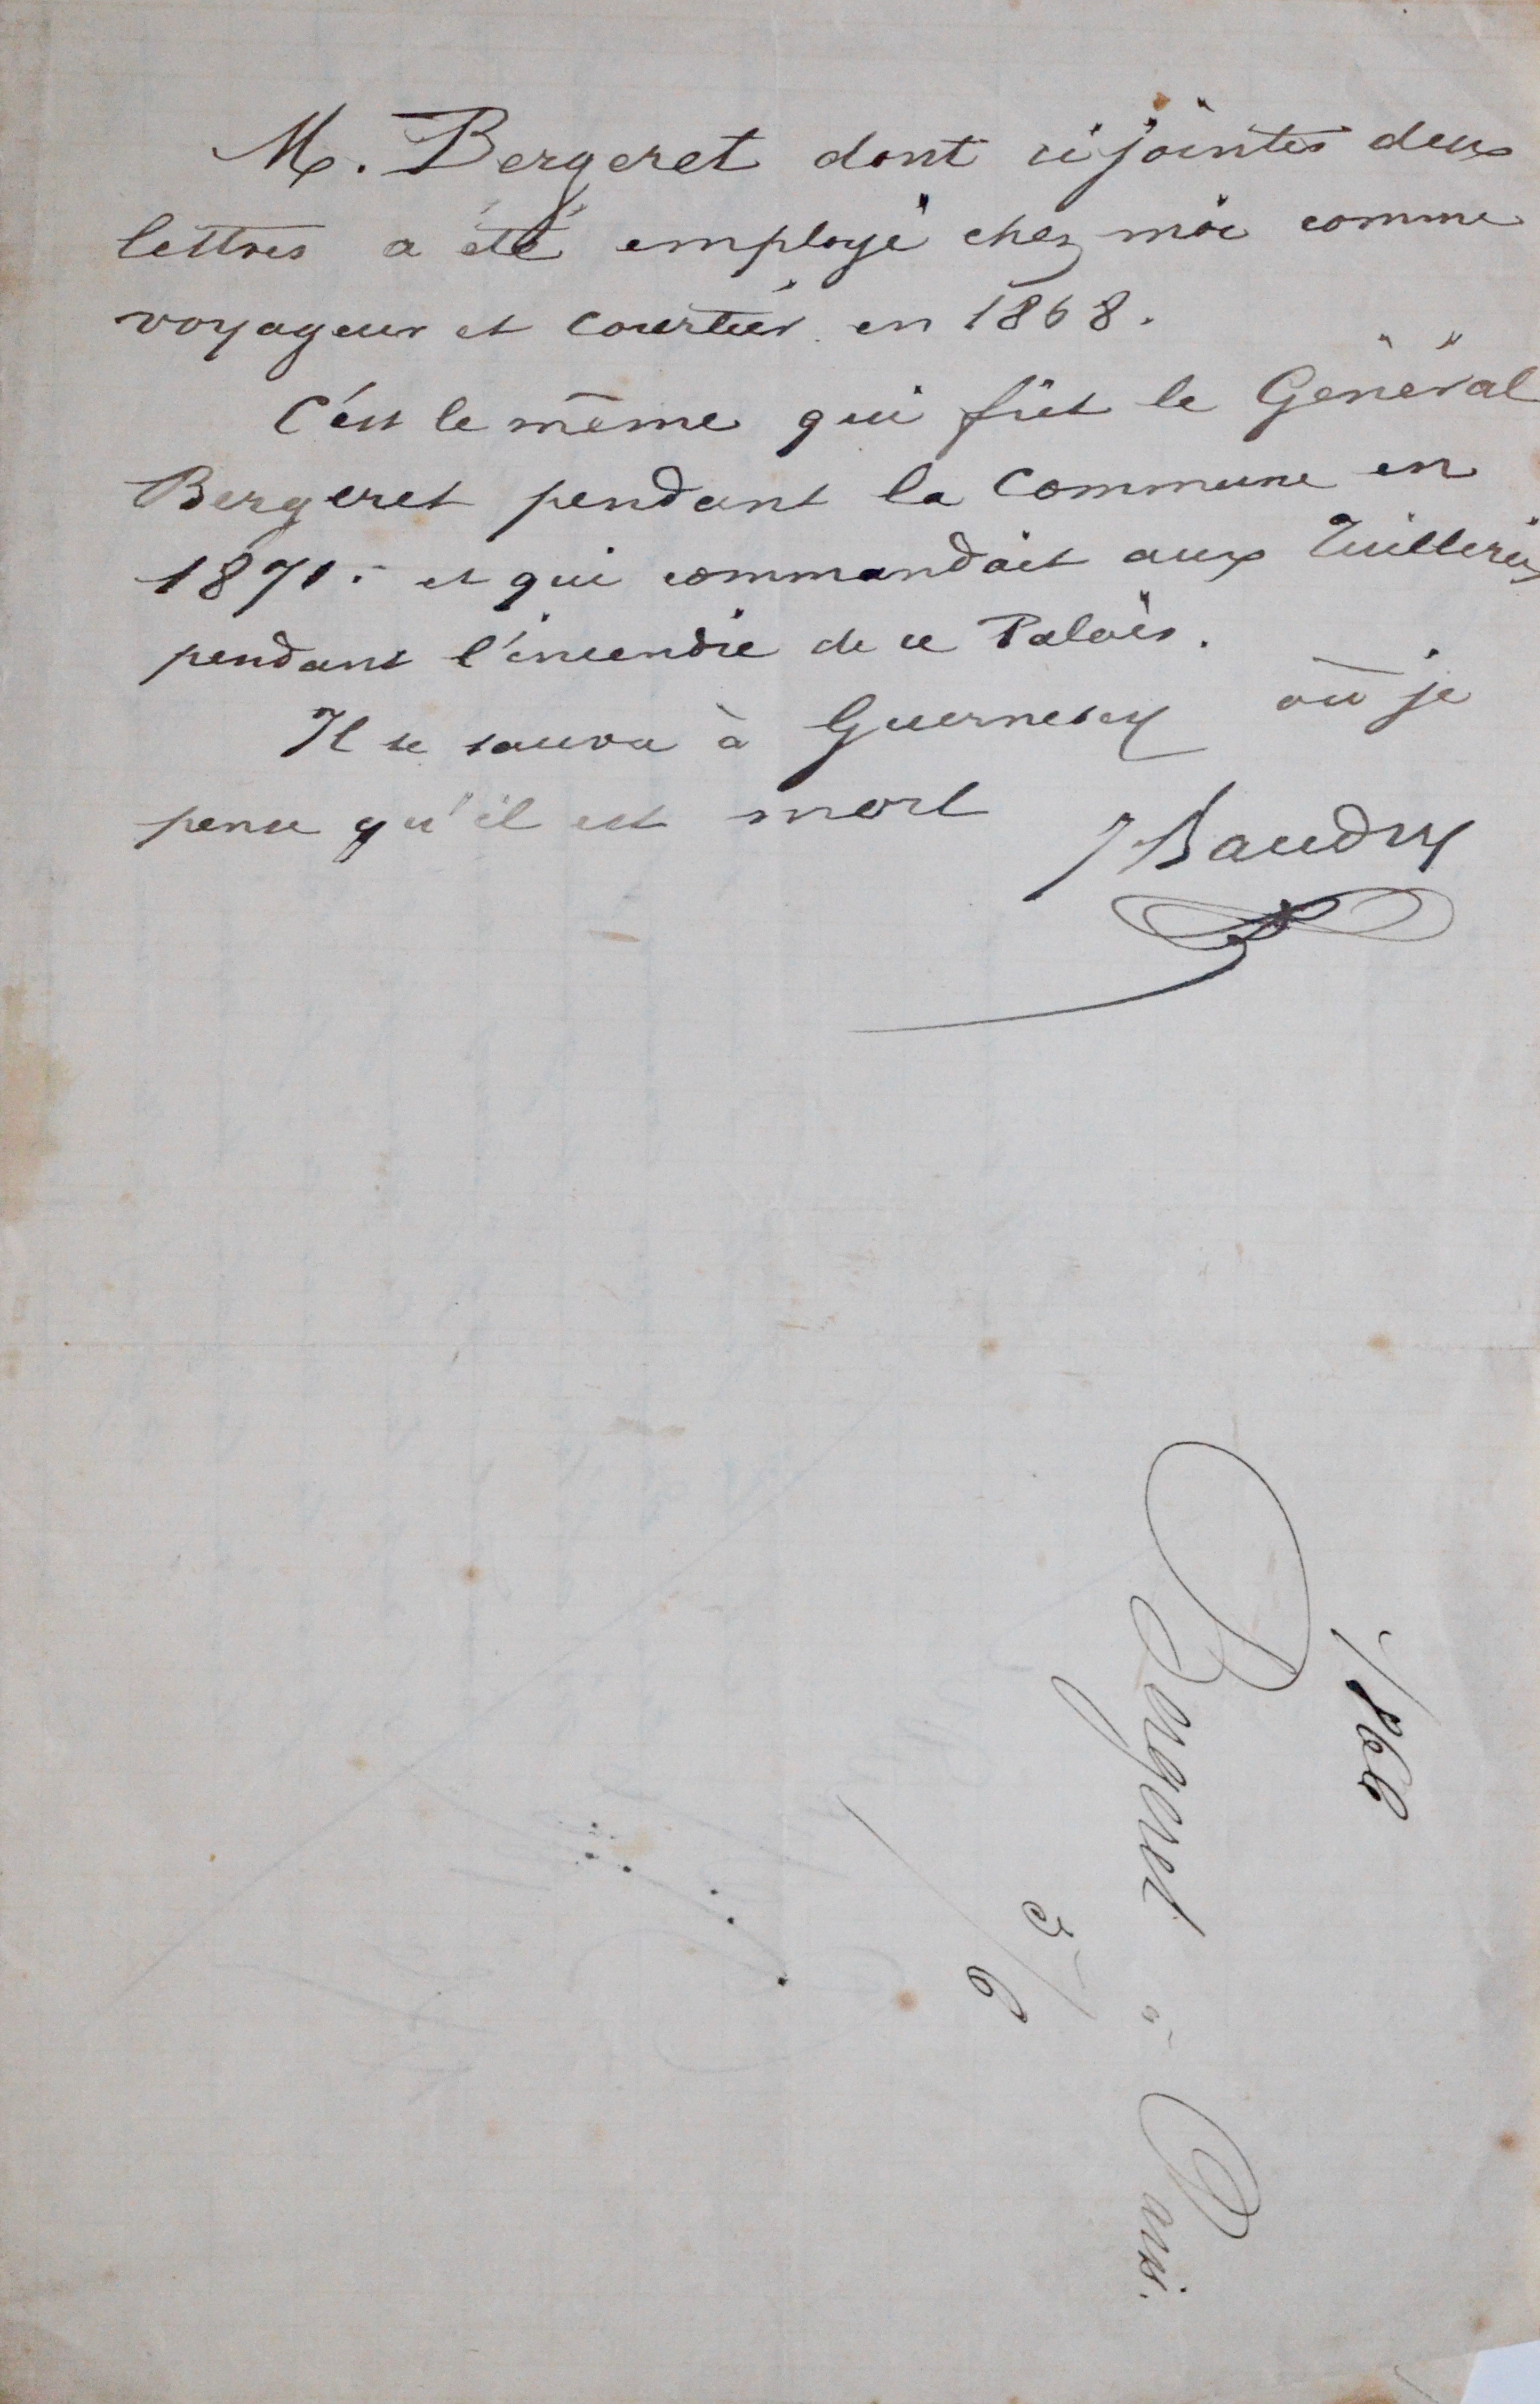 M. Bergeret dont ci jointes deux
lettres a été employé chez moi comme
voyageur et courtier en 1868.
C'est le même qui fût le Général
Bergeret pendant la Commune en
1871. et qui commandait aux Tuilleries
pendant l'incendie de ce Palais.
Il se sauva à Guernesey où je
pense qu'il est mort
J Baudry
1866
Bergeret à Paris.
5/6